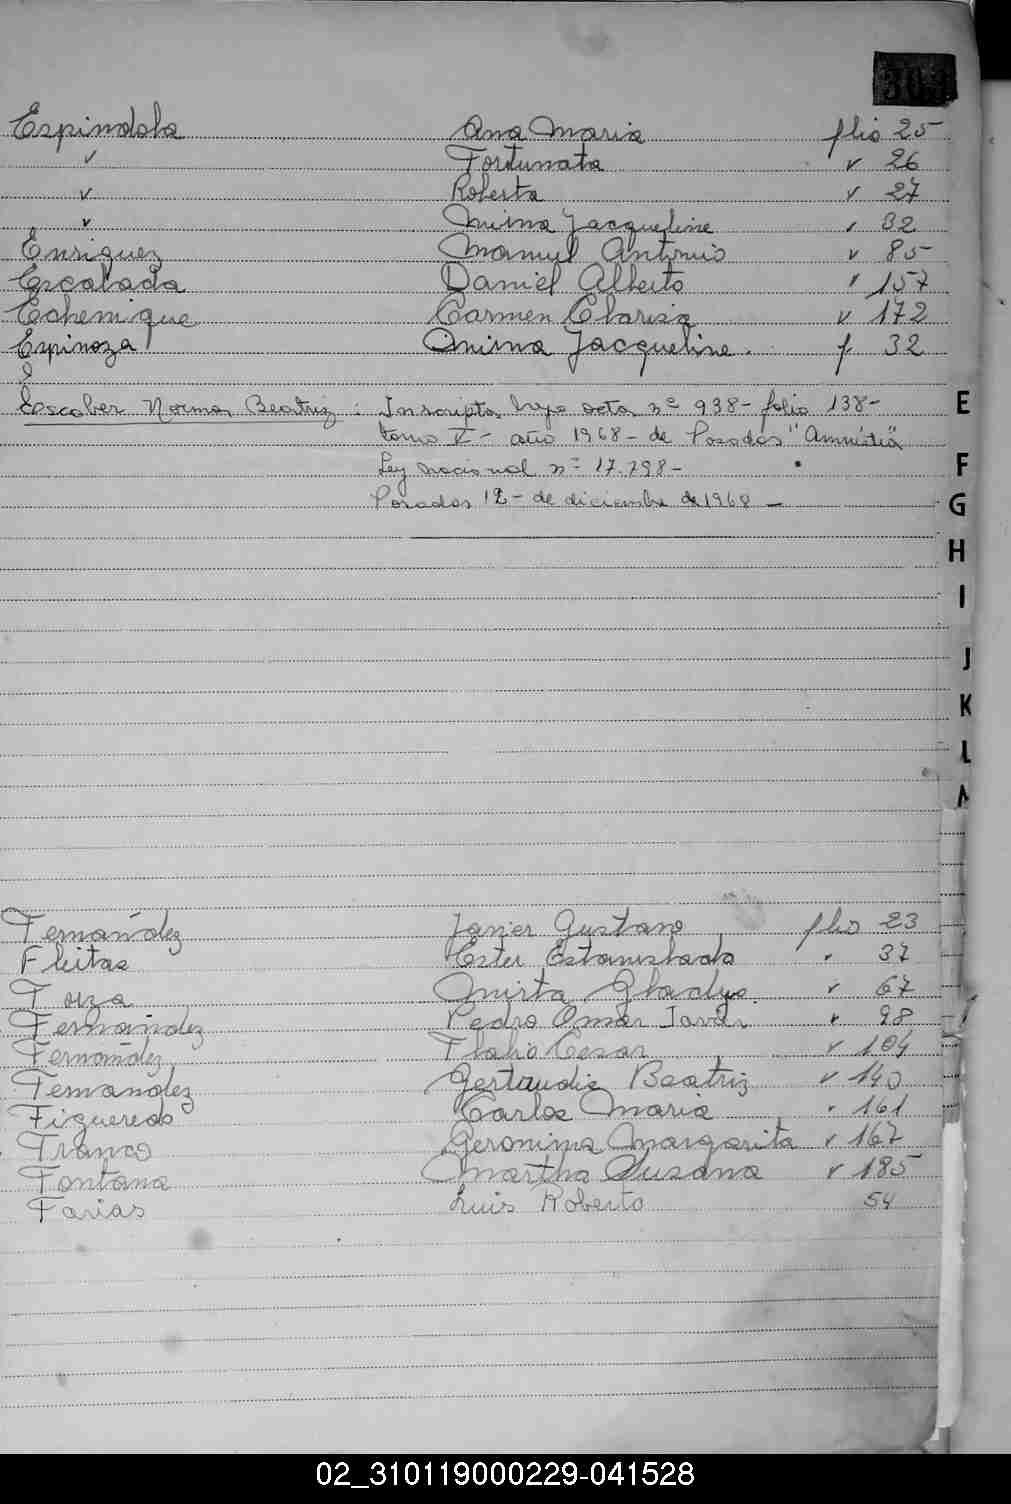 Espindola Ana Maria flio 25
✓ Fortunata ✓ 26
✓ Roberta ✓ 27
✓ Mirna Jacqueline ✓ 32
Enriquez Manuel Antonio ✓ 85
Escalada Daniel Alberto ✓ 157
Echenique Carmen Clarisa ✓ 172
Espinoza Mirna Jacqueline. f. 32
Escober Norma Beatriz : Inscripta bajo acta nº 938- folio 138-
tomo V- año 1968- de Posadas "Amnistia"
Ley nacional nº 17.798-
Posadas 12- de diciembre de 1968 -
E
F
G
H
I
J
K
L
Fernández Javier Gustavo flio 23
Fleitas Ester Estanislada " 37
Foiza Mirta Gladys ✓ 67
Fernandez Pedro Omar Javier ✓ 98
Fernández Flabio Cesar ✓ 104
Fernandez Gertrudis Beatriz ✓ 140
Figueredo Carlos Maria " 161
Franco Geronima Margarita ✓ 167
Fontana Martha Susana ✓ 185
Farias Luis Roberto 54
02_310119000229-041528